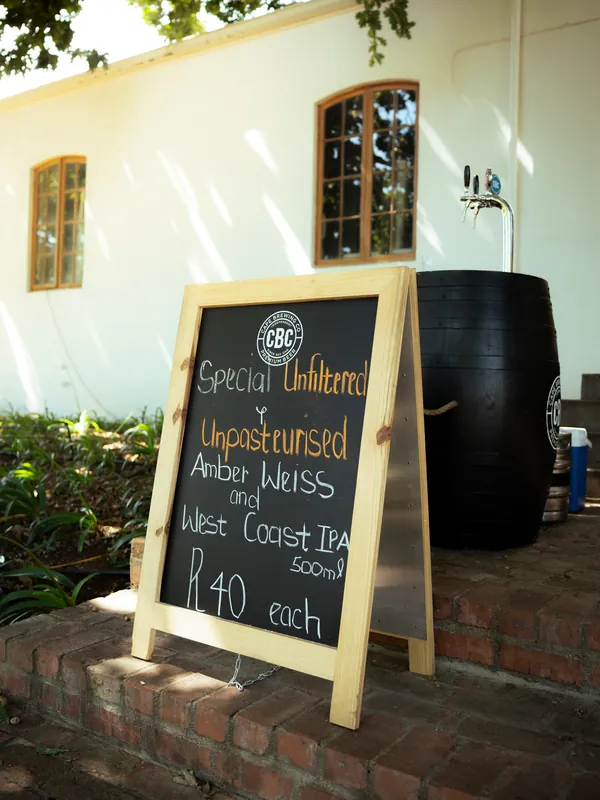 CAPE BREWING CO
CBC
PREMIUM BEER
Special Unfiltered
Y
Unpasteurised
Amber Weiss
and
West Coast IPA
500ml
R40 each